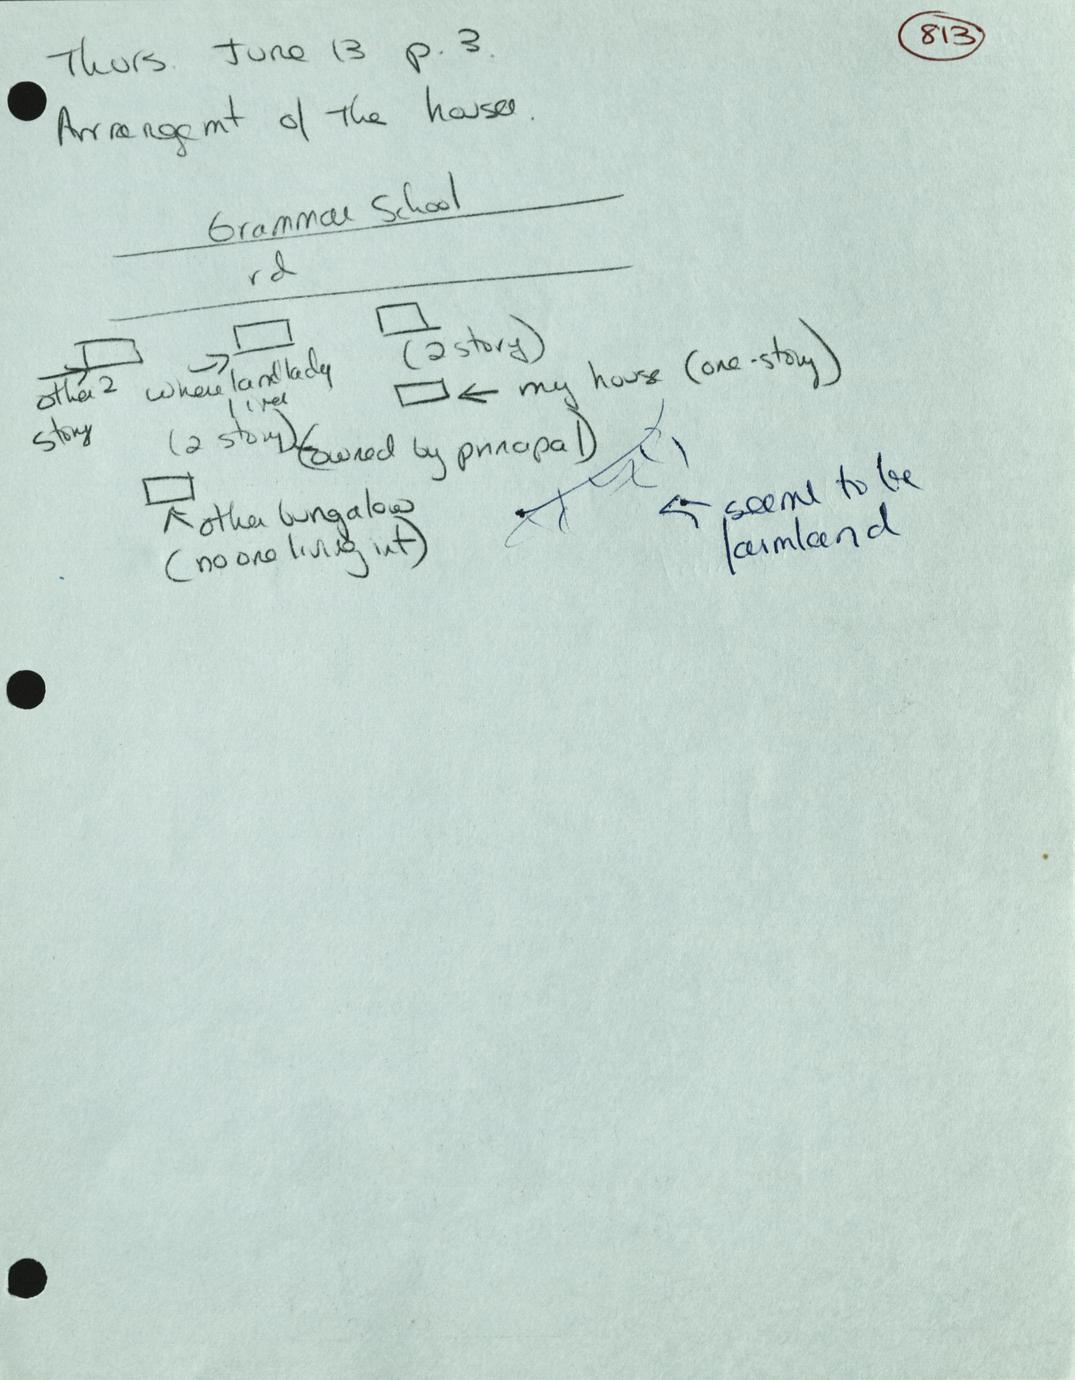 813
Thurs. June 13 p. 3.
Arrangemt of the house.
Grammar School
rd
(2 story)
other 2
story
where landlady
lives
(2 story)
my house (one-story)
(owned by principal)
other bungalow
(no one living in it)
seems to be
farmland